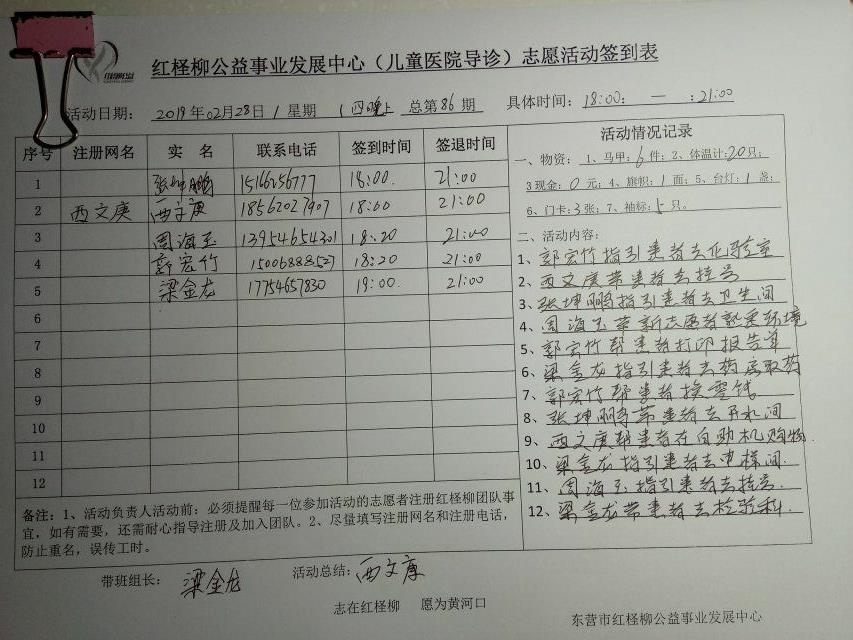 红柽柳公益事业发展中心（儿童医院导诊）志愿活动签到表
活动日期： 2019年02月28日/星期（四晚上 总第86期 具体时间：18:00: — :21:00
序号 注册网名 实 名 联系电话 签到时间 签退时间 活动情况记录
1 张坤鹏 15166256777 18:00. 21:00
2 西文庚 西文庚 18562027907 18:00 21:00
3 周海玉 13954654301 18:20 21:00
4 郭宏竹 15006888527 18:20 21:00
5 梁金龙 17754657830 19:00. 21:00
6
7
8
9
10
11
12
一、物资： 1、马甲：6件；2、体温计：20只；
3现金：0元；4、旗帜：1面；5、台灯：1盏；
6、门卡：3张；7、袖标：5只。
二、活动内容：
1、郭宏竹指引患者去化验室
2、西文庚带患者去挂号
3、张坤鹏指引患者去卫生间
4、周海玉带新志愿者熟悉环境
5、郭宏竹帮患者打印报告单
6、梁金龙指引患者去药房取药
7、郭宏竹帮患者换零钱
8、张坤鹏带患者去开水间
9、西文庚帮患者在自助机购物.
10、梁金龙指引患者去中样间.
11、周海玉指引患者去挂号.
12、梁金龙带患者去检验科.
备注：1、活动负责人活动前：必须提醒每一位参加活动的志愿者注册红柽柳团队事
宜，如有需要，还需耐心指导注册及加入团队。2、尽量填写注册网名和注册电话，
防止重名，误传工时。
带班组长： 梁金龙 活动总结：西文庚
志在红柽柳 愿为黄河口
东营市红柽柳公益事业发展中心